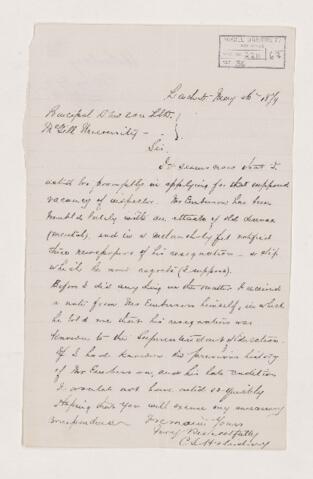 May 16th 1879
Principal Dawson LLD.
McGill University
Sir
It seems now that I
acted too promptly in applying for that supposed
vacancy of inspector. Mr Emberson has been
troubled lately with an attack of old disease
(mental), and in a melancholy fit notified
thro newspapers of his resignation – a step
which he now regrets (I suppose).
Before I did any thing in the matter I received
a note from Mr Emberson himself, in which
he told me that his resignation was
known to the Superintendent of Education.
If I had known the previous history
of Mr Emberson, and his late condition
I would not have acted so quickly.
Hoping that you will excuse my
correspondence
I remain Yours
Very Respectfully